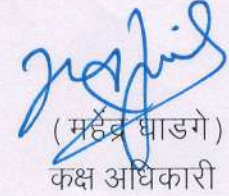 ( महेंद्र घाडगे )
कक्ष अधिकारी